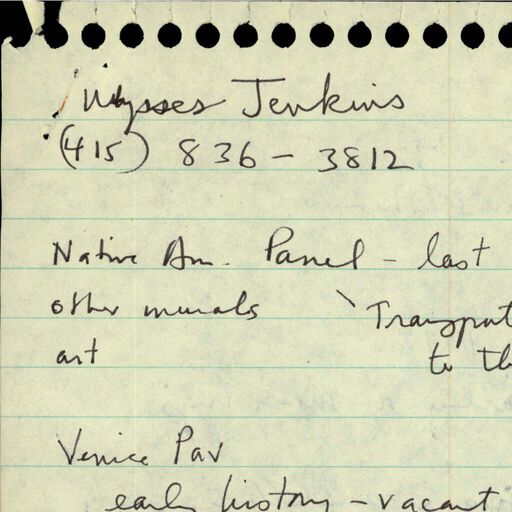 Ulysses Jenkins
(415) 836-3812
Native Am. Panel - last
other murals
Transport
art
to th
Venice Pav
early history - vacant